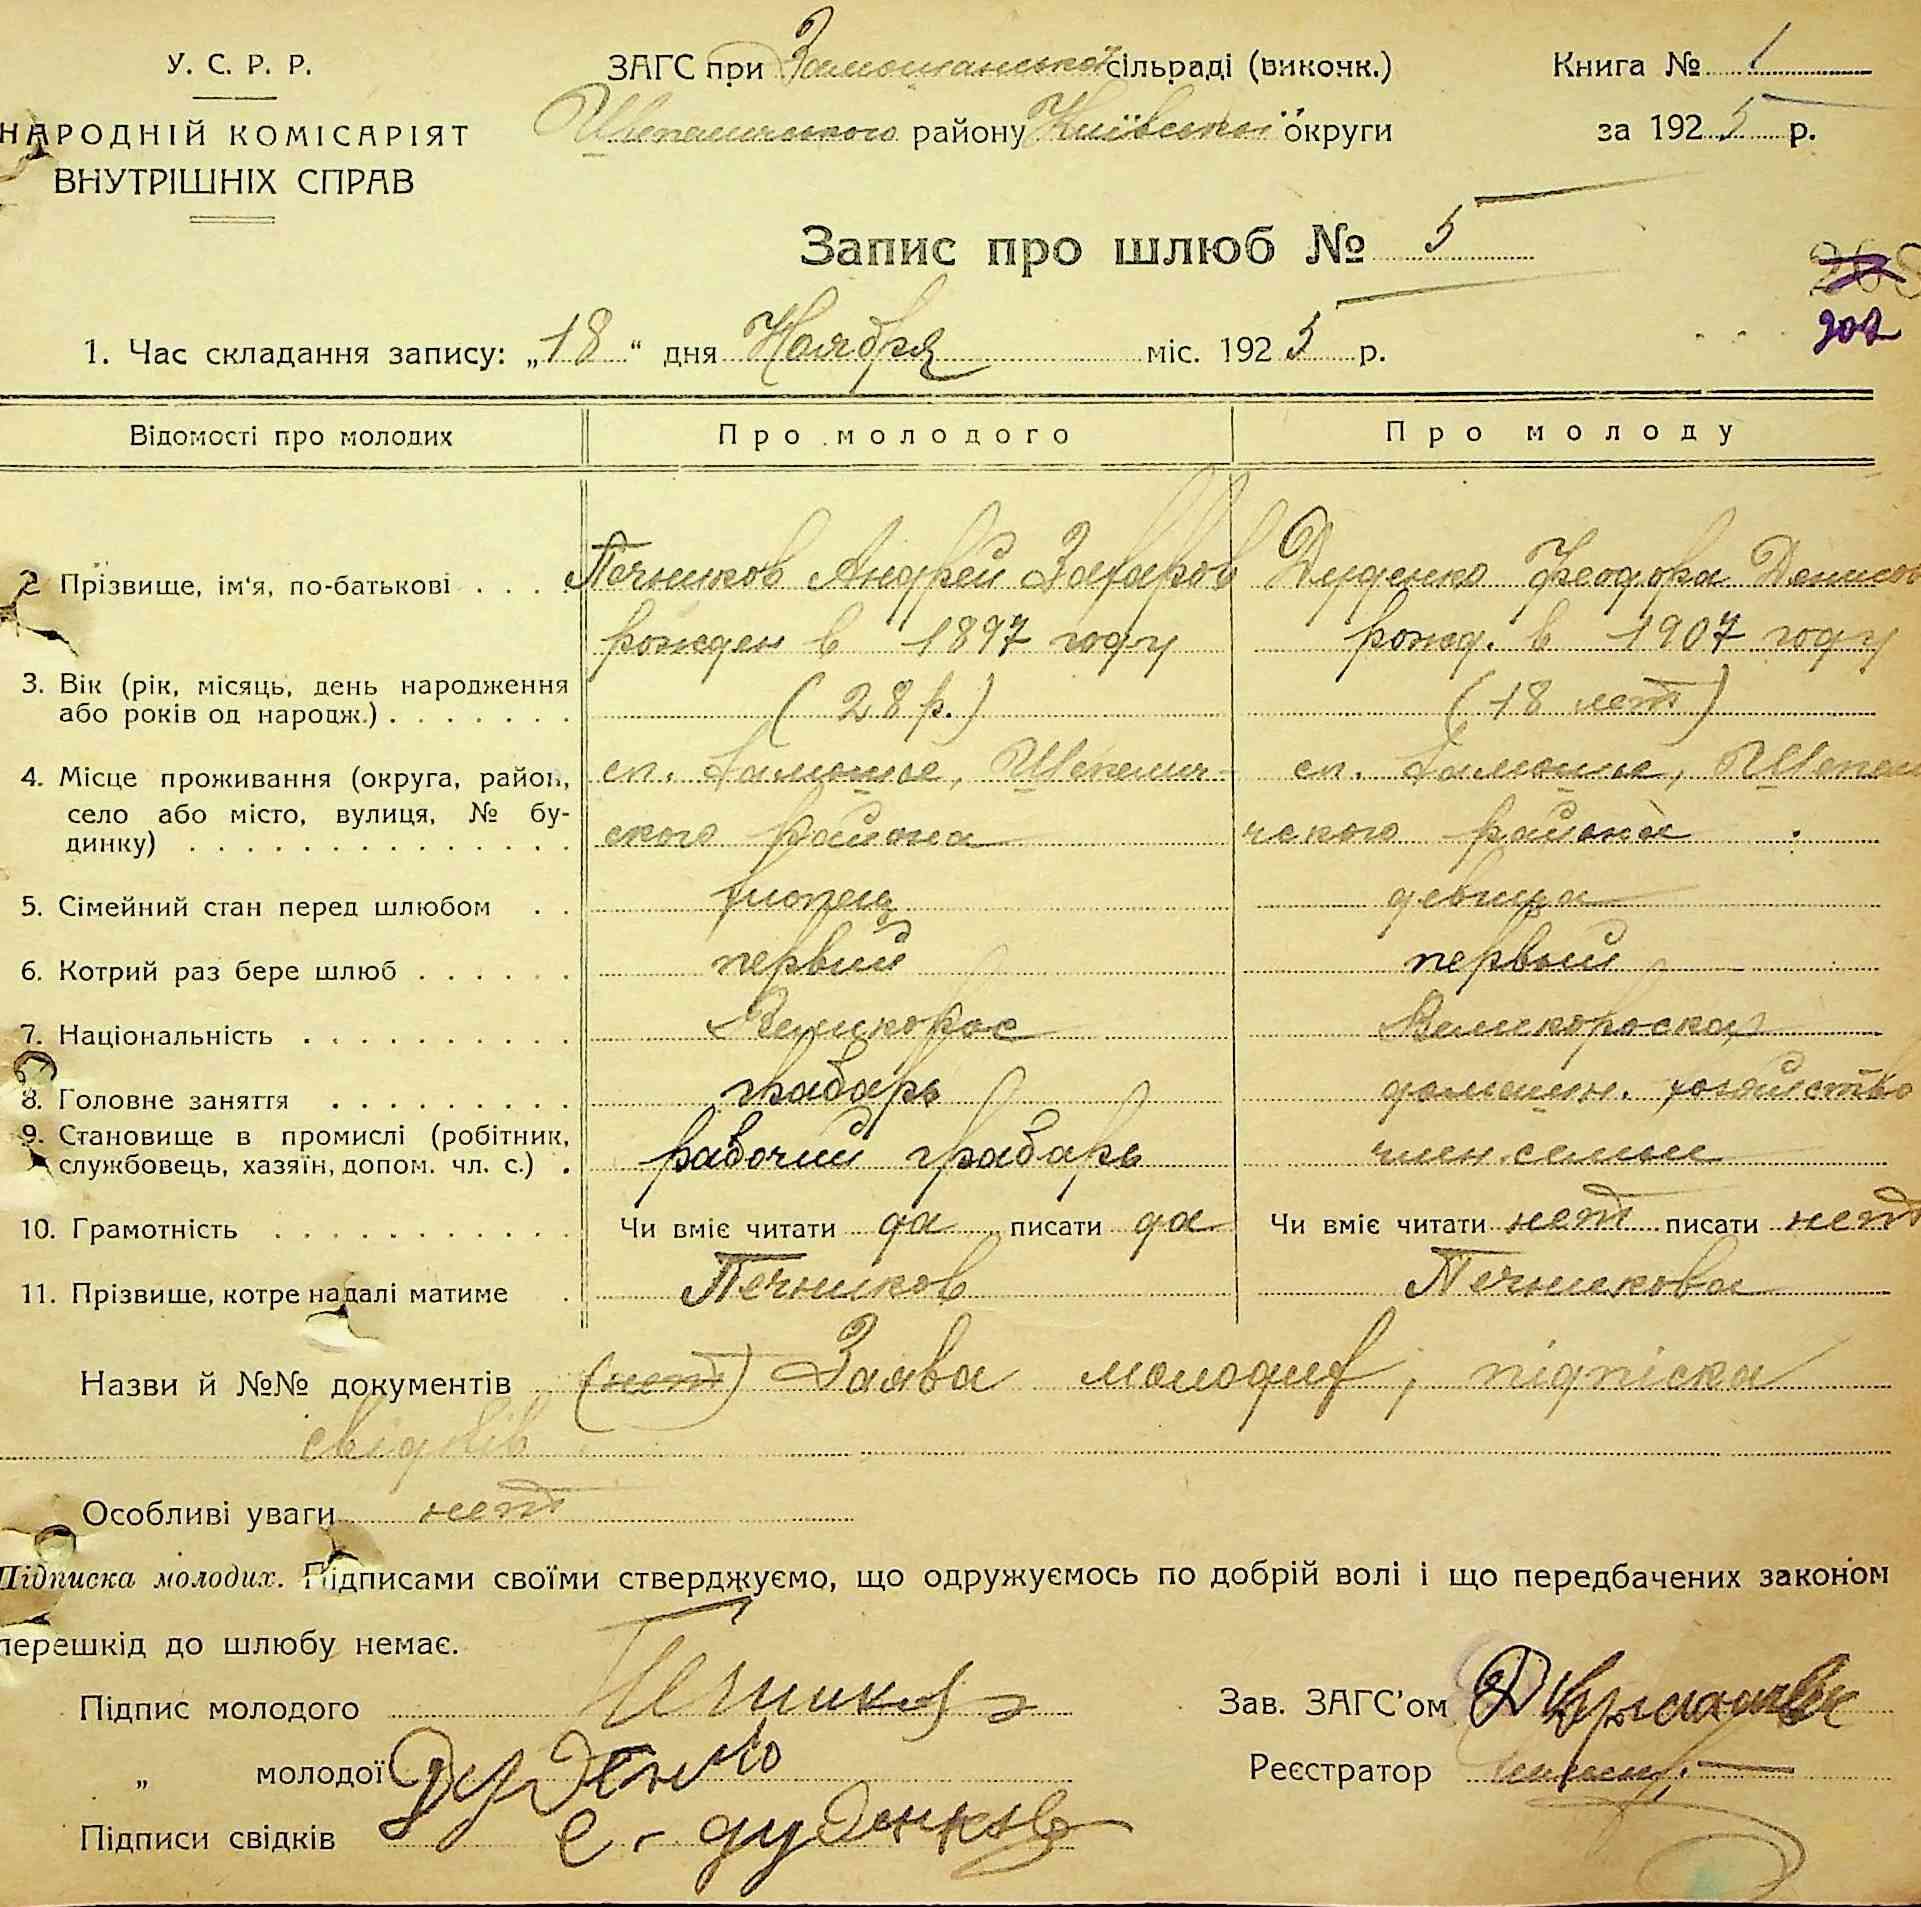 У. С. Р. Р.
НАРОДНІЙ КОМІСАРІЯТ
ВНУТРІШНІХ СПРАВ
ЗАГС при Замошанской сільраді (виконк.)
Шепеличского району Київської округи
Книга № 1
за 1925 р.
Запис про шлюб № 5
307
1. Час складання запису: „18“ дня Ноября міс. 1925 р.
Відомості про молодих Про молодого Про молоду
2 Прізвище, ім‘я, по-батькові . . . . Печников Андрей Захаров Дуденко Феодора Денисов
рожден в 1897 году рожд. в 1907 году
3. Вік (рік, місяць, день народження
або років од народж.) . . . . . . . (28 р.) (18 лет)
4. Місце проживання (округа, район, сл. Замошье, Шепелич- сл. Замошье, Шепели
село або місто, вулиця, № бу-
динку) . . . . . . . . . . . . . . . ского района чского района
5. Сімейний стан перед шлюбом . . девица
6. Котрий раз бере шлюб . . . . . . первий первый
7. Національність . . . . . . . . . . Великорос Великороска
8. Головне заняття . . . . . . . . . грабарь домашн. хозяйство
9. Становище в промислі (робітник,
службовець, хазяїн, допом. чл. с.) . рабочий грабарь член семьи
10. Грамотність . . . . . . . . . . . . Чи вміє читати да писати да Чи вміє читати нет писати нет
11. Прізвище, котре надалі матиме . Печников Печникова
Назви й №№ документів (нет) Заява молодих, підпіска
свідків
Особливі уваги нет
Підписка молодих. Підписами своїми стверджуємо, що одружуємось по добрій волі і що передбачених законом
перешкід до шлюбу немає.
Підпис молодого Печников
Зав. ЗАГС’ом
„ молодої Дуденко
Реєстратор
Підписи свідків С. дуденков